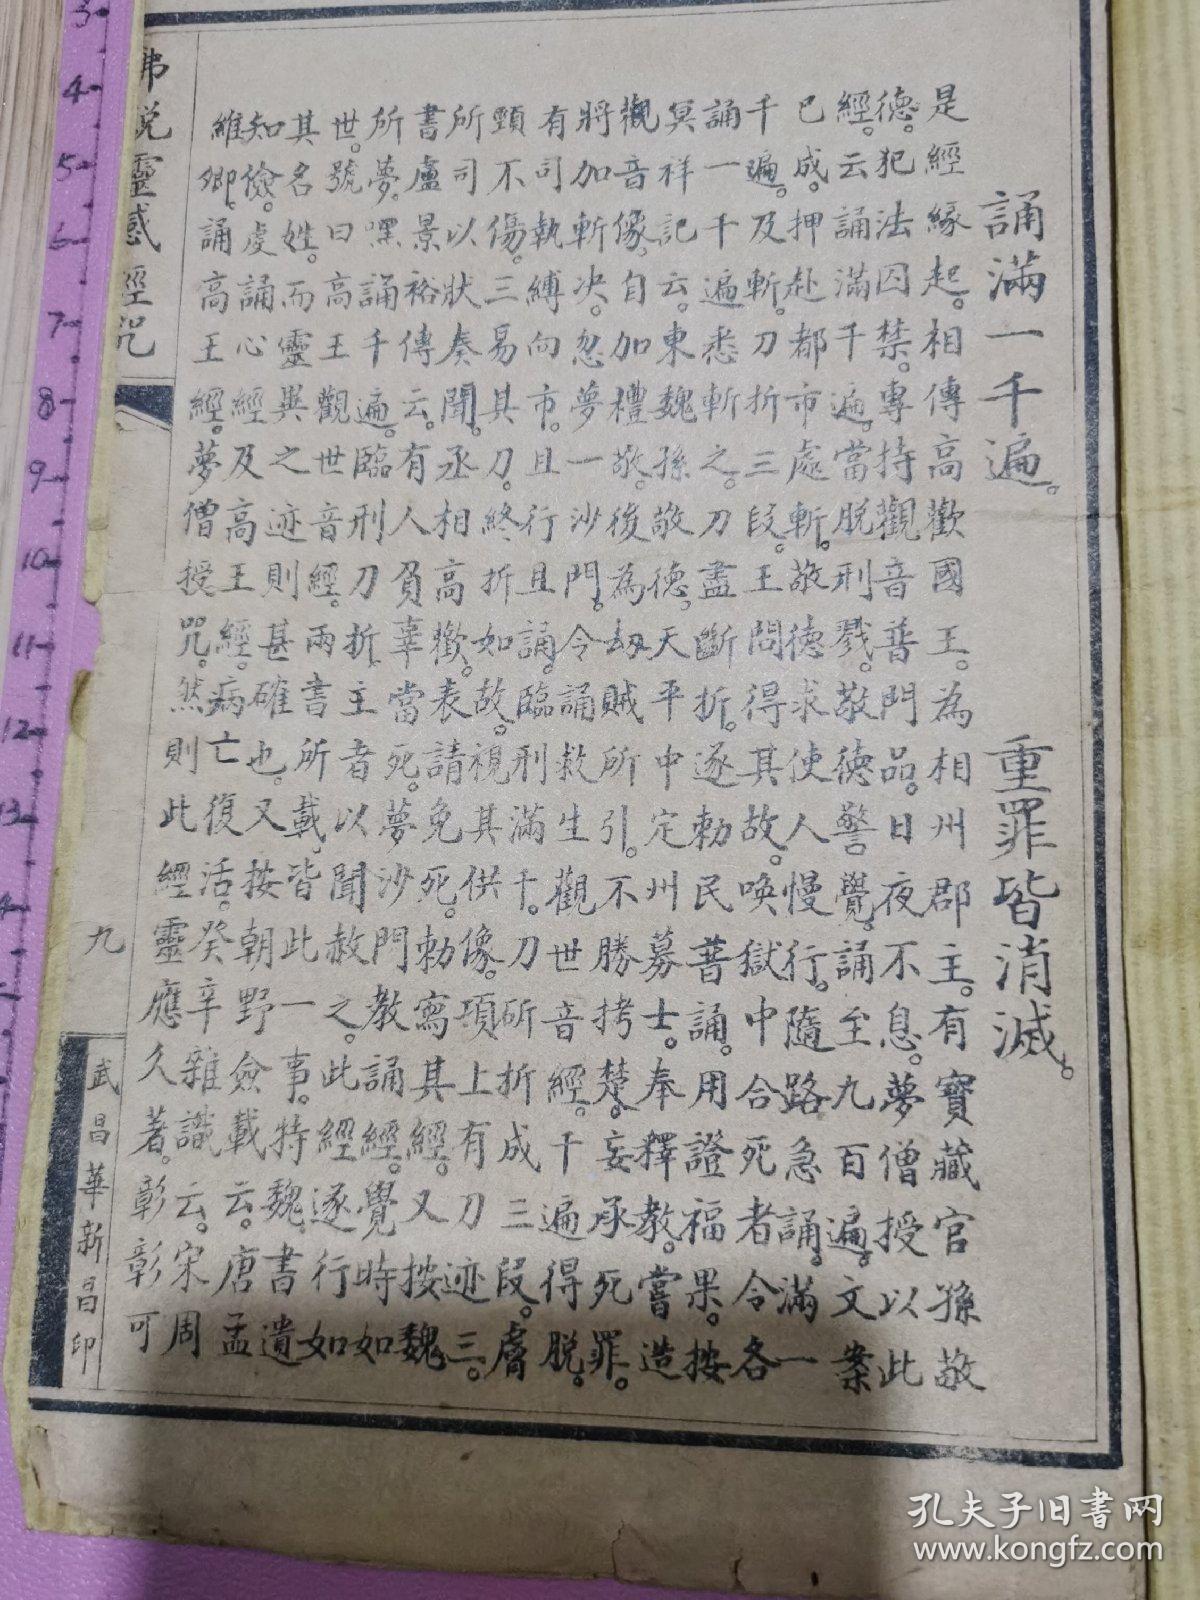 誦滿一千遍。重罪皆消滅。
是經緣起。相傳高歡國王。為相州郡主。有寶藏官孫敬
德。犯法囚禁。專持觀音普門品。日夜不息。夢僧授以此
經。云誦滿千遍。當脫刑戮。敬德警覺。誦至九百遍。文案
已成。押赴都市處斬。敬德求使人慢行。隨路急誦。滿一
千遍。及斬。刀折三段。王問得其故。喚獄中合死者令各
誦一千遍。悉斬之。刀盡斷折。逐勅民普誦。用證福果。按
冥祥記云。東魏孫敬德。天平中定州募士。奉釋教。嘗造
觀音像。自加禮敬。後為劫賊所引。不勝拷楚。妄承死罪。
將加斬決。忽夢一沙門。令誦救生觀世音經。千遍得脫。
有司執縛向市。且行且誦。臨刑滿千。刀斫折成三段。膚
頸不傷。三易其刀。終折如故。視其供像。項上有刀迹三。
所司以狀奏聞。丞相高歡。表請免死。勅寫其經。又按魏
書盧景裕傳云。有人負辜當死。夢沙門教誦經。覺時如
所夢。嘿誦千遍。臨刑刀折。主者以聞赦之。此經逐行如
世。號曰高王觀世音經。兩書所載。皆此一事。特魏書遺
其名姓。而靈異之迹則甚確也。又按朝野僉載云。唐孟
知儉。處誦心經及高王經。病亡復活。癸辛雜識云。宋周
維卿。誦高王經。夢僧授咒。然則此經靈應久著。彰彰可
佛說靈感經咒
九
武昌華新昌印
3
4
5
6
7
8
9
10
11
12
13
孔夫子旧书网
www.kongfz.com